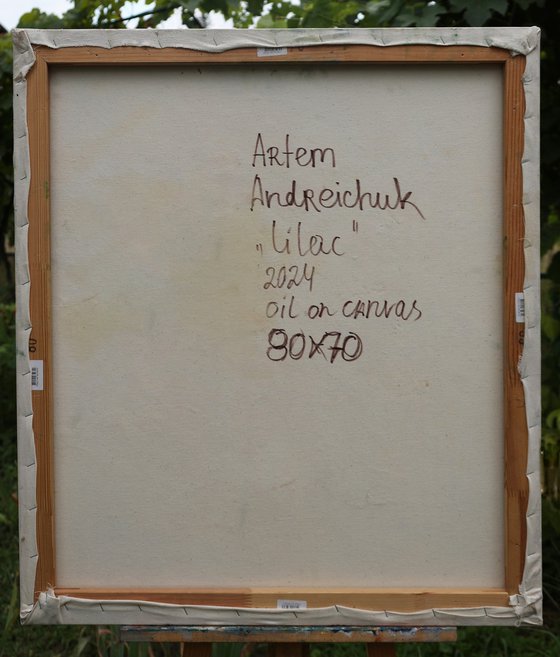 Artem
Andreichuk
„Lilac"
2024
oil on canvas
80x70
80